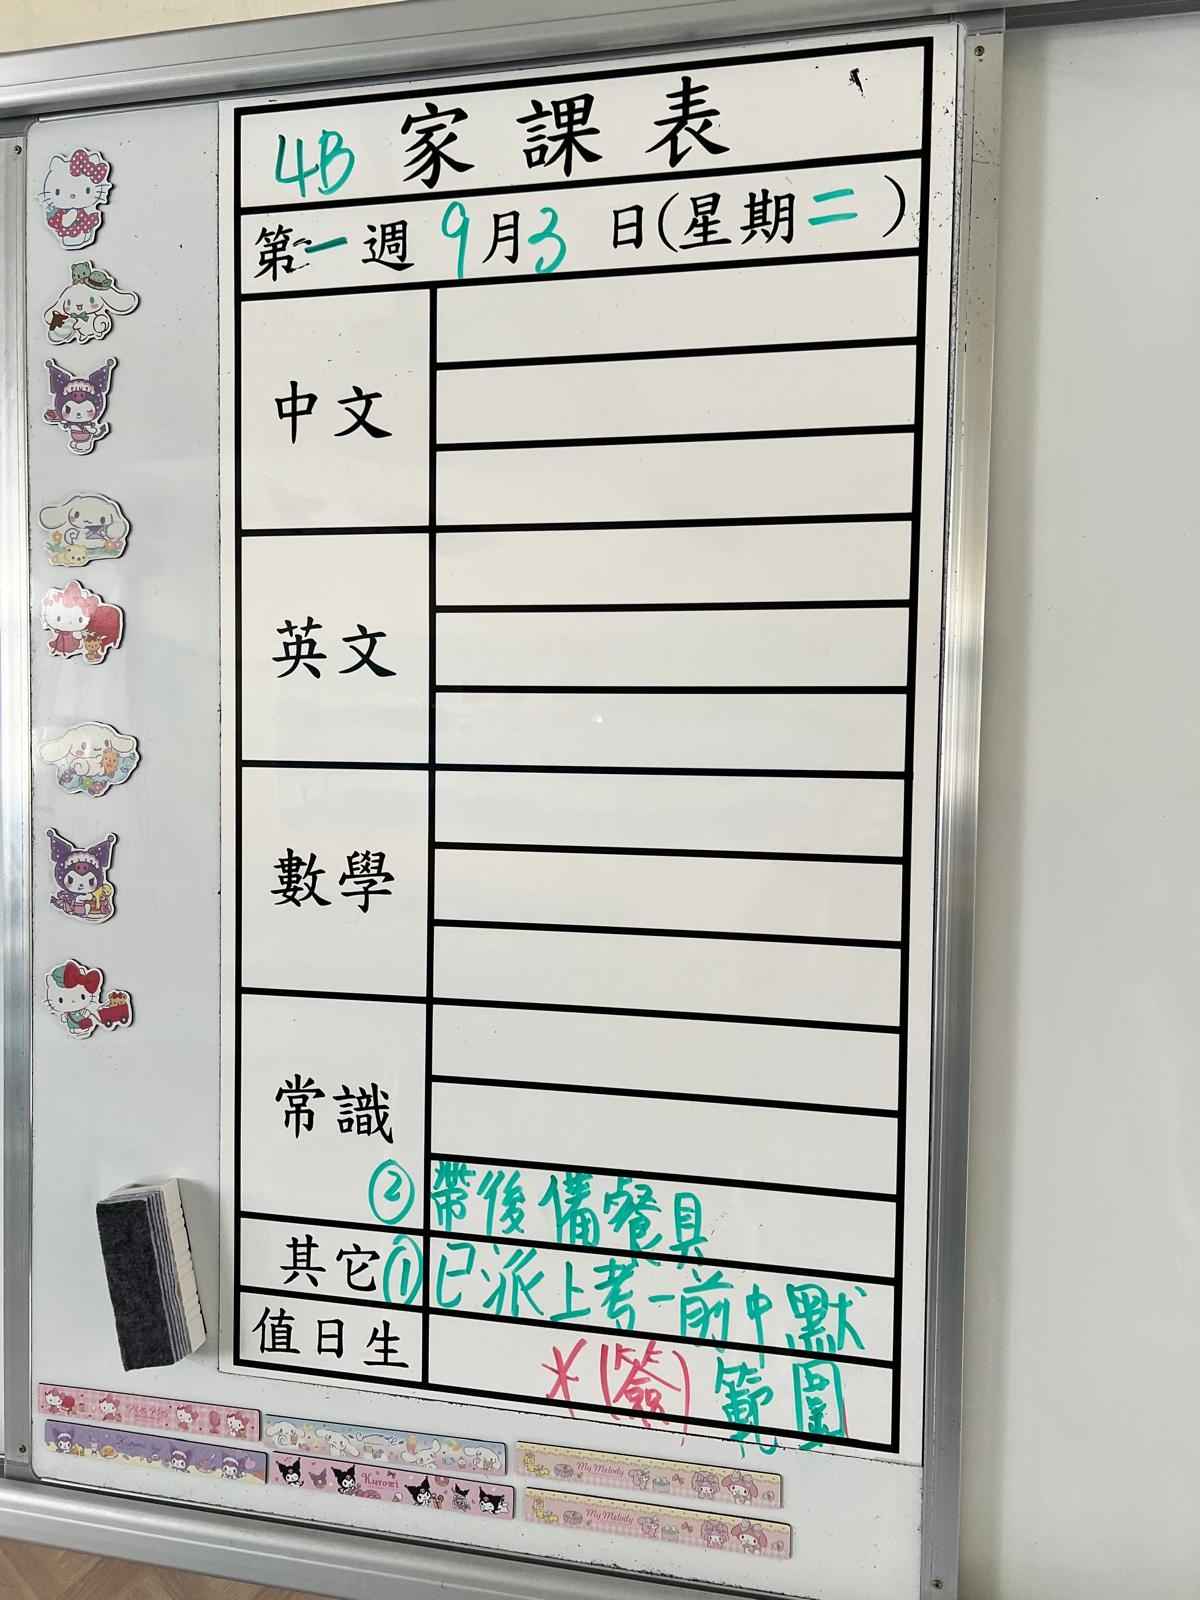 4B 家課表
第一週 9月3日(星期二)
中文
英文
數學
常識
② 帶後備餐具
其它 ① 已派上考一前中默
值日生 *(簽) 範圍
Hello Kitty
Cinnamoroll
Kuromi
Kuromi
My Melody
My Melody